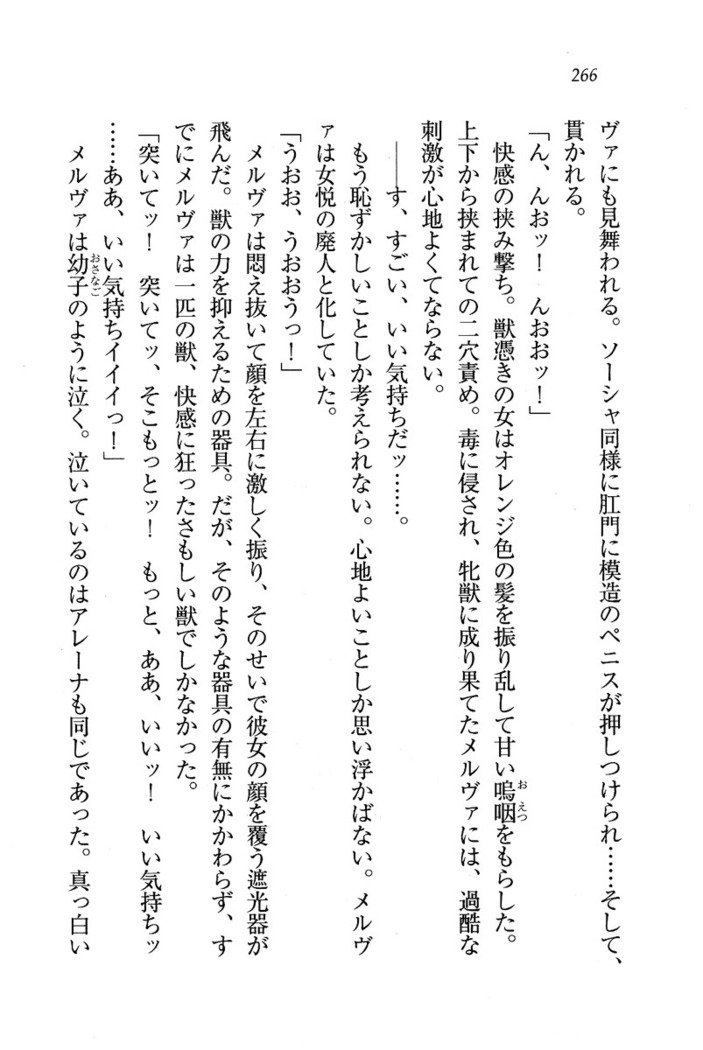 266
ヴァにも見舞われる。ソーシャ同様に肛門に模造のペニスが押しつけられ……そして、
貫かれる。
「ん、んおッ！　んおおッ！」
快感の挟み撃ち。獣憑きの女はオレンジ色の髪を振り乱して甘い嗚咽をもらした。
上下から挟まれての二穴責め。毒に侵され、牝獣に成り果てたメルヴァには、過酷な
刺激が心地よくてならない。
――す、すごい、いい気持ちだッ……。
もう恥ずかしいことしか考えられない。心地よいことしか思い浮かばない。メルヴ
ァは女悦の廃人と化していた。
「うおお、うおおうっ！」
メルヴァは悶え抜いて顔を左右に激しく振り、そのせいで彼女の顔を覆う遮光器が
飛んだ。獣の力を抑えるための器具。だが、そのような器具の有無にかかわらず、す
でにメルヴァは一匹の獣、快感に狂ったさもしい獣でしかなかった。
「突いてッ！　突いてッ、そこもっとッ！　もっと、ああ、いいッ！　いい気持ちッ
……ああ、いい気持ちイイイっ！」
メルヴァは幼子のように泣く。泣いているのはアレーナも同じであった。真っ白い